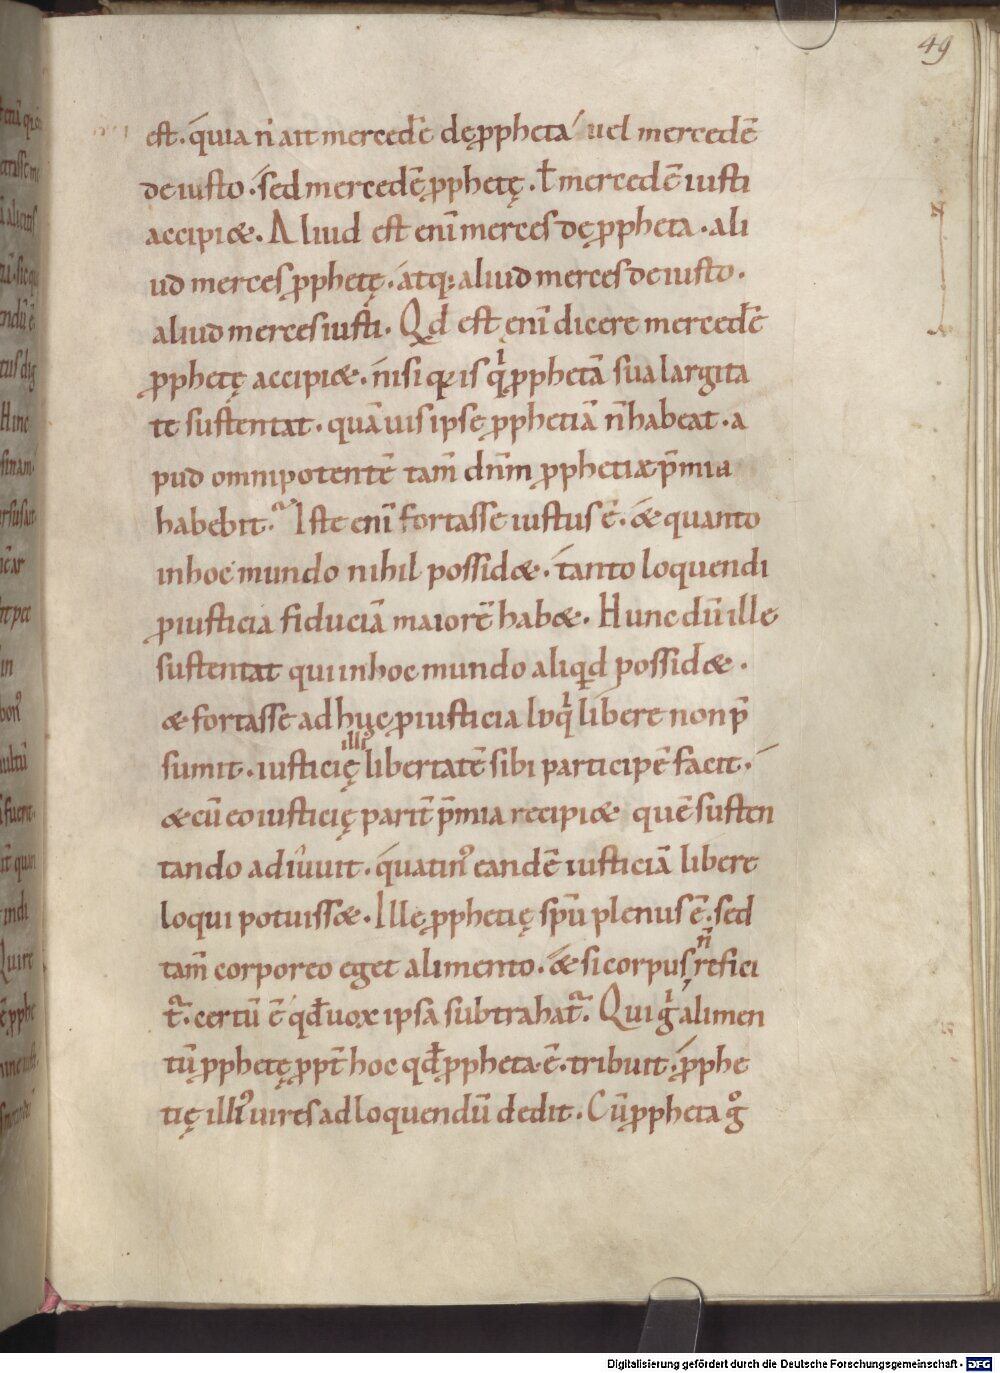 49
est. quia n̄ ait mercedē deꝓpheta uel mercedē
de iusto. sed mercedē ꝓphetę. ł mercedē iusti
accipi&. Aliud est enī merces deꝓpheta. ali
ud merces ꝓphetę. atq; aliud merces de iusto.
aliud merces iusti. Qd est enī dicere mercedē
ꝓphetę accipi&. nisi qꝛ is qͥ ꝓphetā sua largita
te sustentat. quāuis ipse ꝓphetiā n̄ habeat. a
pud omnipotentē tam̄ dn̄m ꝓphetiæ p̄mia
habebit. Iste enī fortasse iustus ē. & quanto
in hoc mundo nihil possid&. tanto loquendi
ꝓ iusticia fiduciā maiorē hab&. Hunc dū ille
sustentat qui in hoc mundo aliqd possid&.
& fortasse adhuc ꝓ iusticia loqͥ libere non p̄
sumit. iusticię illiꝰ libertatē sibi participē facit.
& cū eo iusticię parit̄ p̄mia recipi& quē susten
tando adiuuit. quatinꝰ eandē iusticiā libere
loqui potuiss&. Ille ꝓphetię sp̄u plenus ē. sed
tam̄ corporeo eget alimento. & si corpus n̄ refici
t᷑. certū ē qđ uox ipsa subtrahat᷑. Qui gͥ alimen
tū ꝓphetę ꝓpt̄ hoc qđ ꝓpheta ē. tribuit. ꝓphe
tię illiꝰ uires ad loquendū dedit. Cū ꝓpheta gͦ
Digitalisierung gefördert durch die Deutsche Forschungsgemeinschaft - DFG